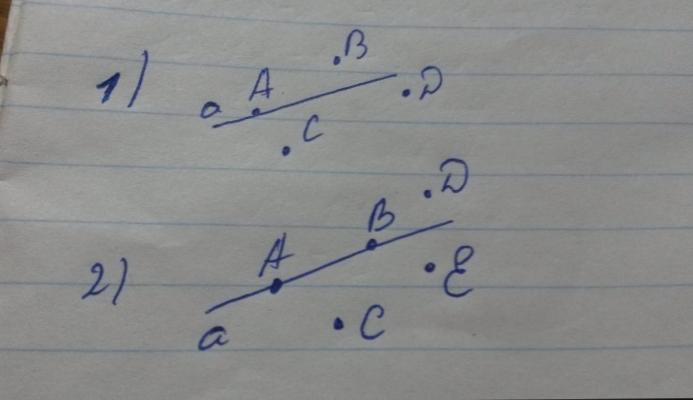 1)
B
a A D
C
2)
D
A B
E
a C